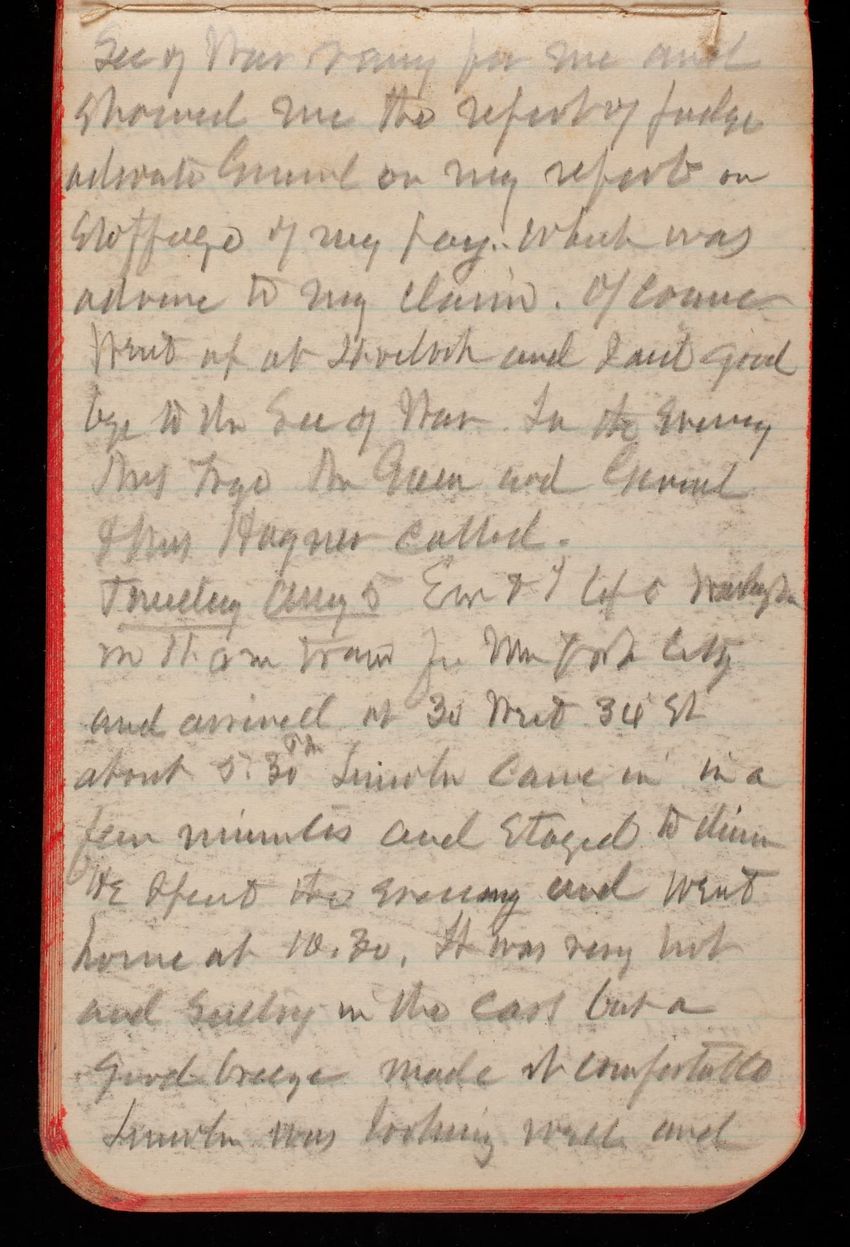 Sec of War rang for me and
showed me the report of Judge
advocate General on my report on
Stoppage of my pay. which was
adverse to my claim. Of course
Went up at 4 oclock and said good
bye to the Sec of War. In the evening
Mrs Mr Green and General
& Mrs Hagner called.
Tuesday Aug 5 Em & I left Washington
on 11 am train for New York City
and arrived at 30 West 34 St
about 5:30 Lincoln came in in a
few minutes and stayed to dinner
He spent the evening and went
home at 10.30. It was very hot
and sultry in the cars but a
good breeze made it comfortable
Lincoln was looking well and